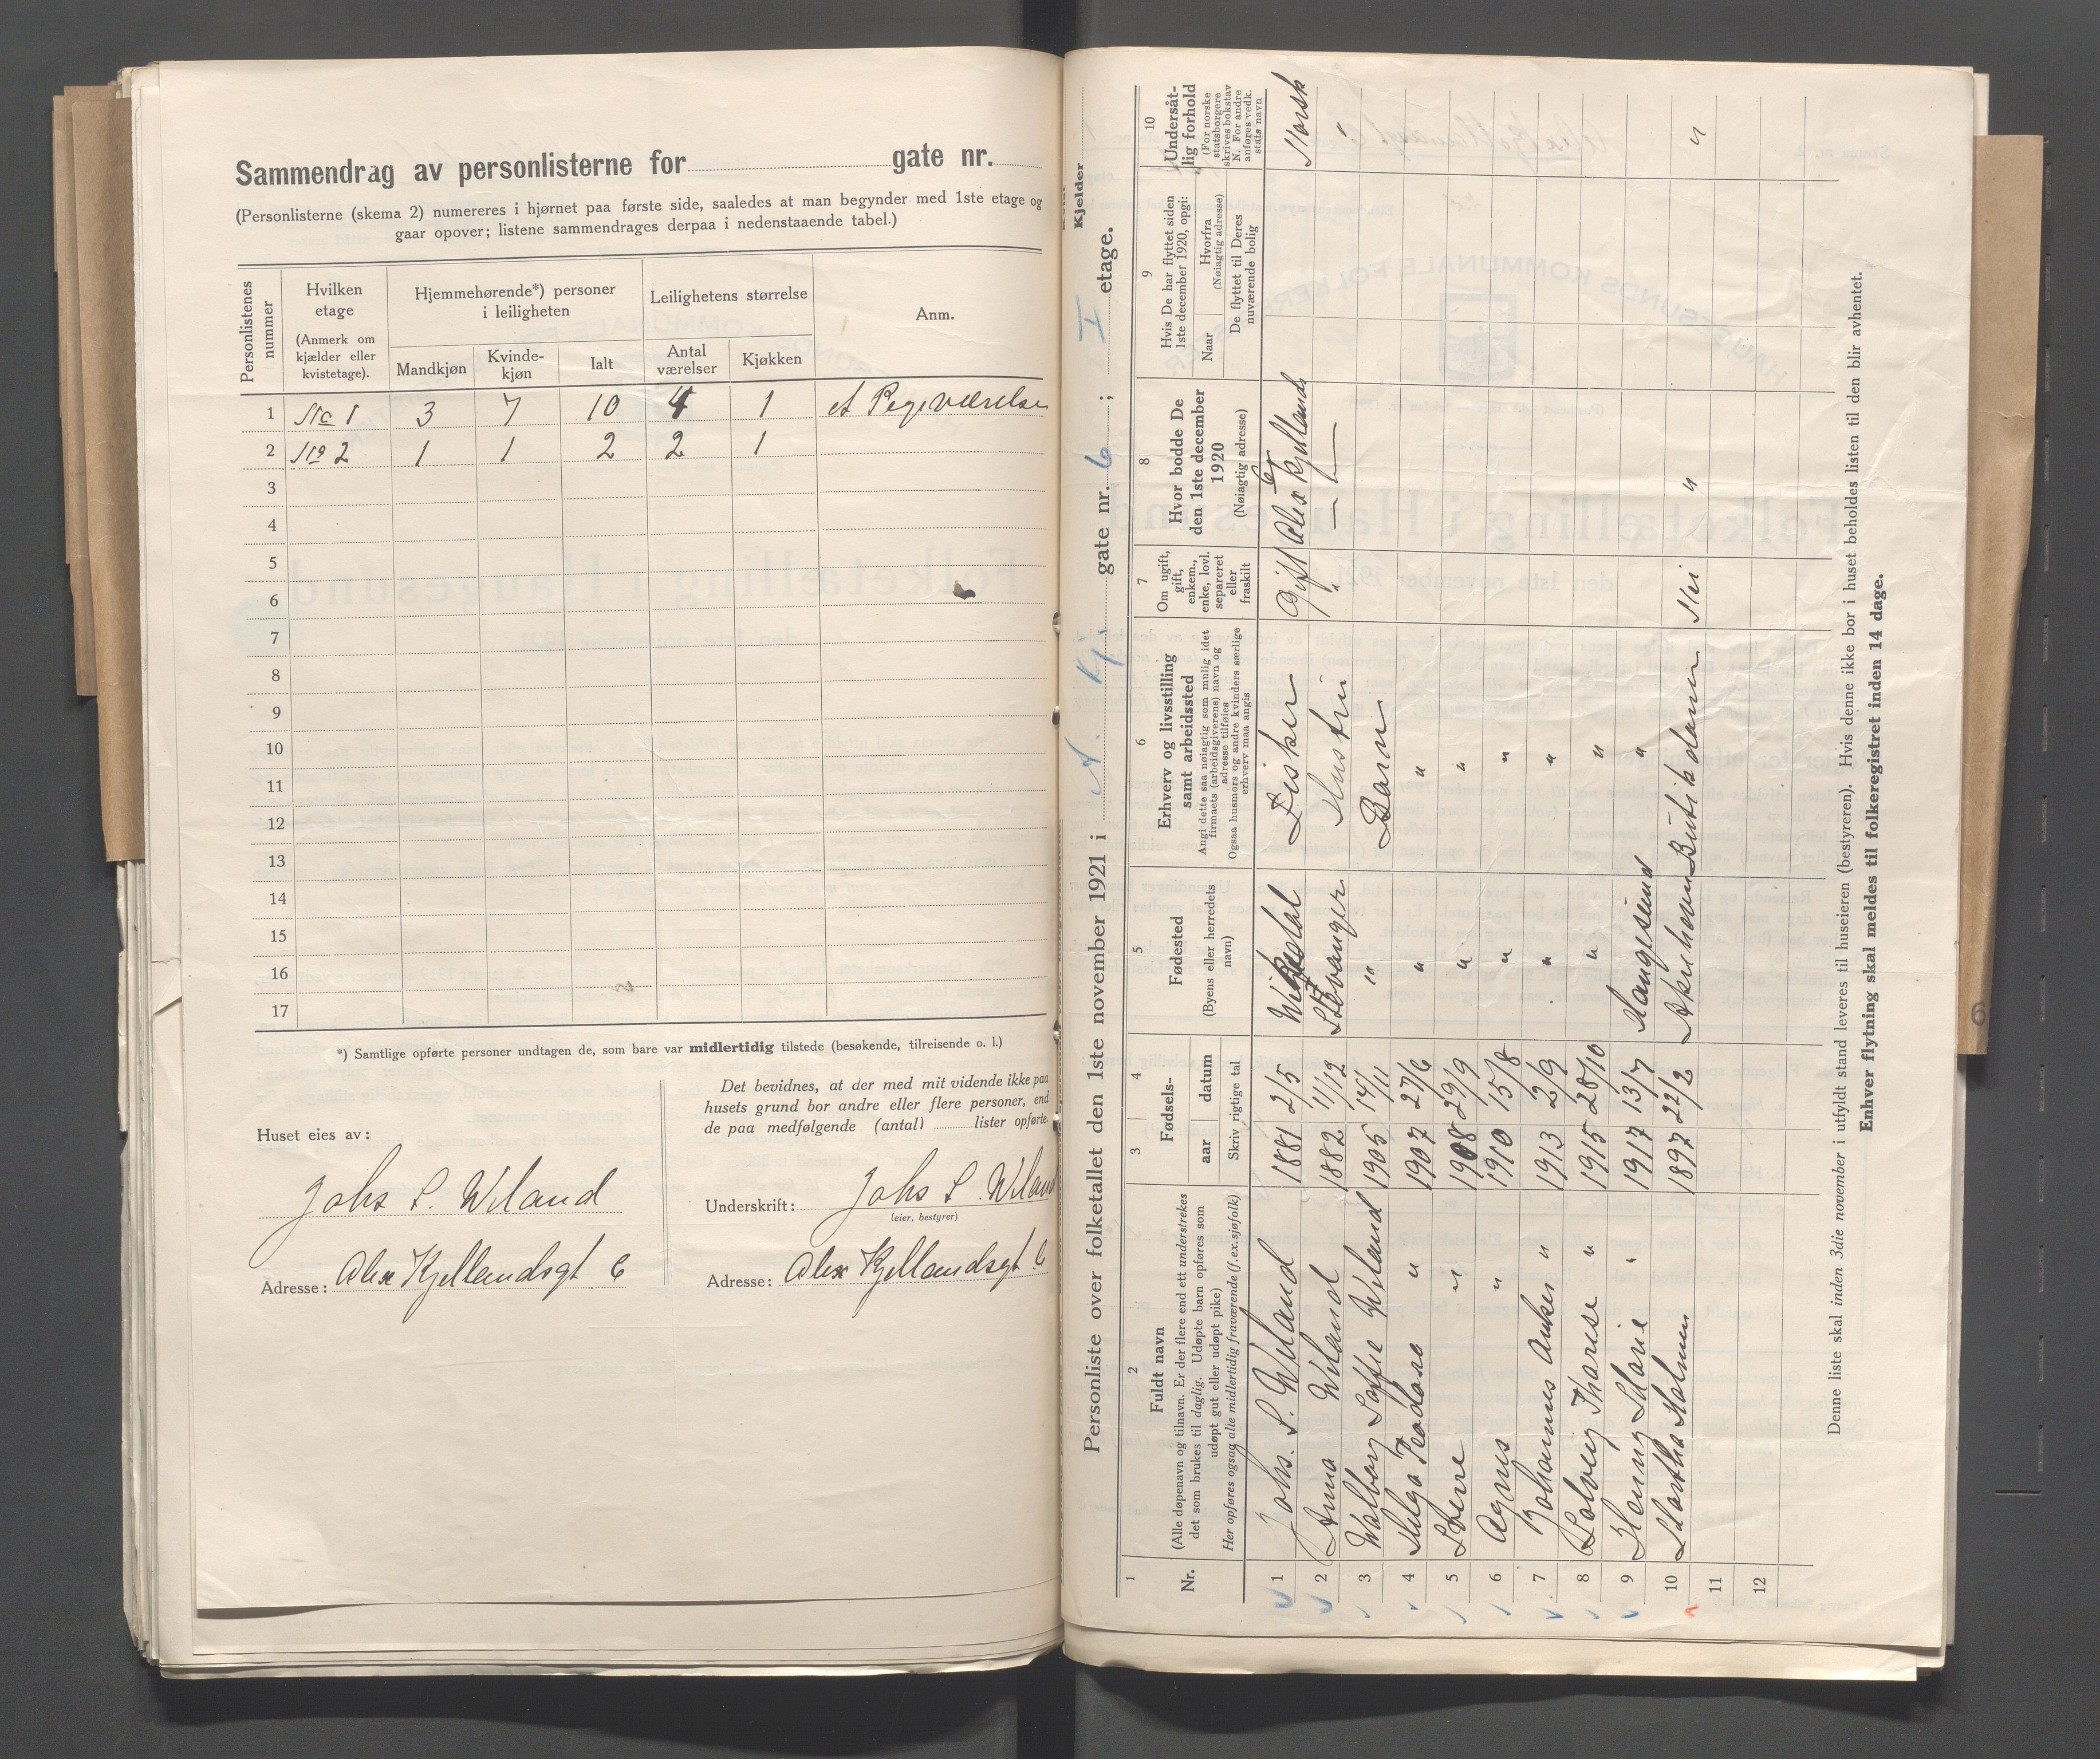 Sammendrag av personlisterne for gate nr.
(Personlisterne (skema 2) numereres i hjørnet paa første side, saaledes at man begynder med 1ste etage og
gaar opover; listene sammendrages derpaa i nedenstaaende tabel.)
Personlistenes nummer
Hvilken etage (Anmerk om kjælder eller kvistetage).
Hjemmehørende*) personer i leiligheten
Mandkjøn Kvinde-kjøn Ialt
Leilighetens størrelse
Antal værelser Kjøkken
Anm.
1 No 1 3 7 10 4 1 Pigeværelse
2 No 2 1 1 2 2 1
3
4
5
6
7
8
9
10
11
12
13
14
15
16
17
*) Samtlige opførte personer undtagen de, som bare var midlertidig tilstede (besøkende, tilreisende o. l.)
Huset eies av:
Johs S. Wiland
Adresse: Alex Kjellandsgt 6
Det bevidnes, at der med mit vidende ikke paa
husets grund bor andre eller flere personer, end
de paa medfølgende (antal) lister opførte.
Underskrift: Johs S. Wiland
(eier, bestyrer)
Adresse: Alex Kjellandsgt 6
Kjelder
Personliste over folketallet den 1ste november 1921 i A. Kj. gate nr. 6; I etage.
1 Nr.
2 Fuldt navn
(Alle døpenavn og tilnavn. Er der flere end ett understrekes
det som brukes til daglig. Udøpte barn opføres som
udøpt gut eller udøpt pike)
Her opføres ogsaa alle midlertidig fraværende (f. ex. sjøfolk)
3 4 Fødsels-
aar datum
Skriv rigtige tal
5 Fødested
(Byens eller herredets navn)
6 Erhverv og livsstilling samt arbeidssted
Angi dette saa nøiagtig som mulig idet
firmaets (arbeidsgiverens) navn og
adresse tilføies
Ogsaa husmors og andre kvinders særlige
erhverv maa angis
7 Om ugift, gift, enkem., enke, lovl. separeret eller fraskilt
8 Hvor bodde De den 1ste december 1920
(Nøiagtig adresse)
9 Hvis De har flyttet siden 1ste december 1920, opgi:
Naar Hvorfra (Nøiagtig adresse)
De flyttet til Deres nuværende bolig
10 Undersåt-lig forhold
(For norske statsborgere skrives bokstav N. For andre anføres vedk. stats navn
1 Johs. S. Wiland 1881 2/5 Fisker Gift Alex Kjellands 6 Norsk
2 Anna Wiland 1882 11/12 Stavanger Hustru " — " — "
3 Walborg Soffie Wiland 1905 14/11 " Barn
4 Helga Teodora " 1907 27/6 " "
5 Sverre " 1908 29/9 " "
6 Agnes " 1910 15/8 " "
7 Johannes Anker " 1913 2/9 " "
8 Solveig Tharise " 1915 28/10 " "
9 Henny Marie " 1917 13/7 Haugesund "
10 Martha Holmen 1897 22/2 Butikdame Nei " "
11
12
Denne liste skal inden 3die november i utfyldt stand leveres til huseieren (bestyreren). Hvis denne ikke bor i huset beholdes listen til den blir avhentet.
Enhver flytning skal meldes til folkeregistret inden 14 dage.